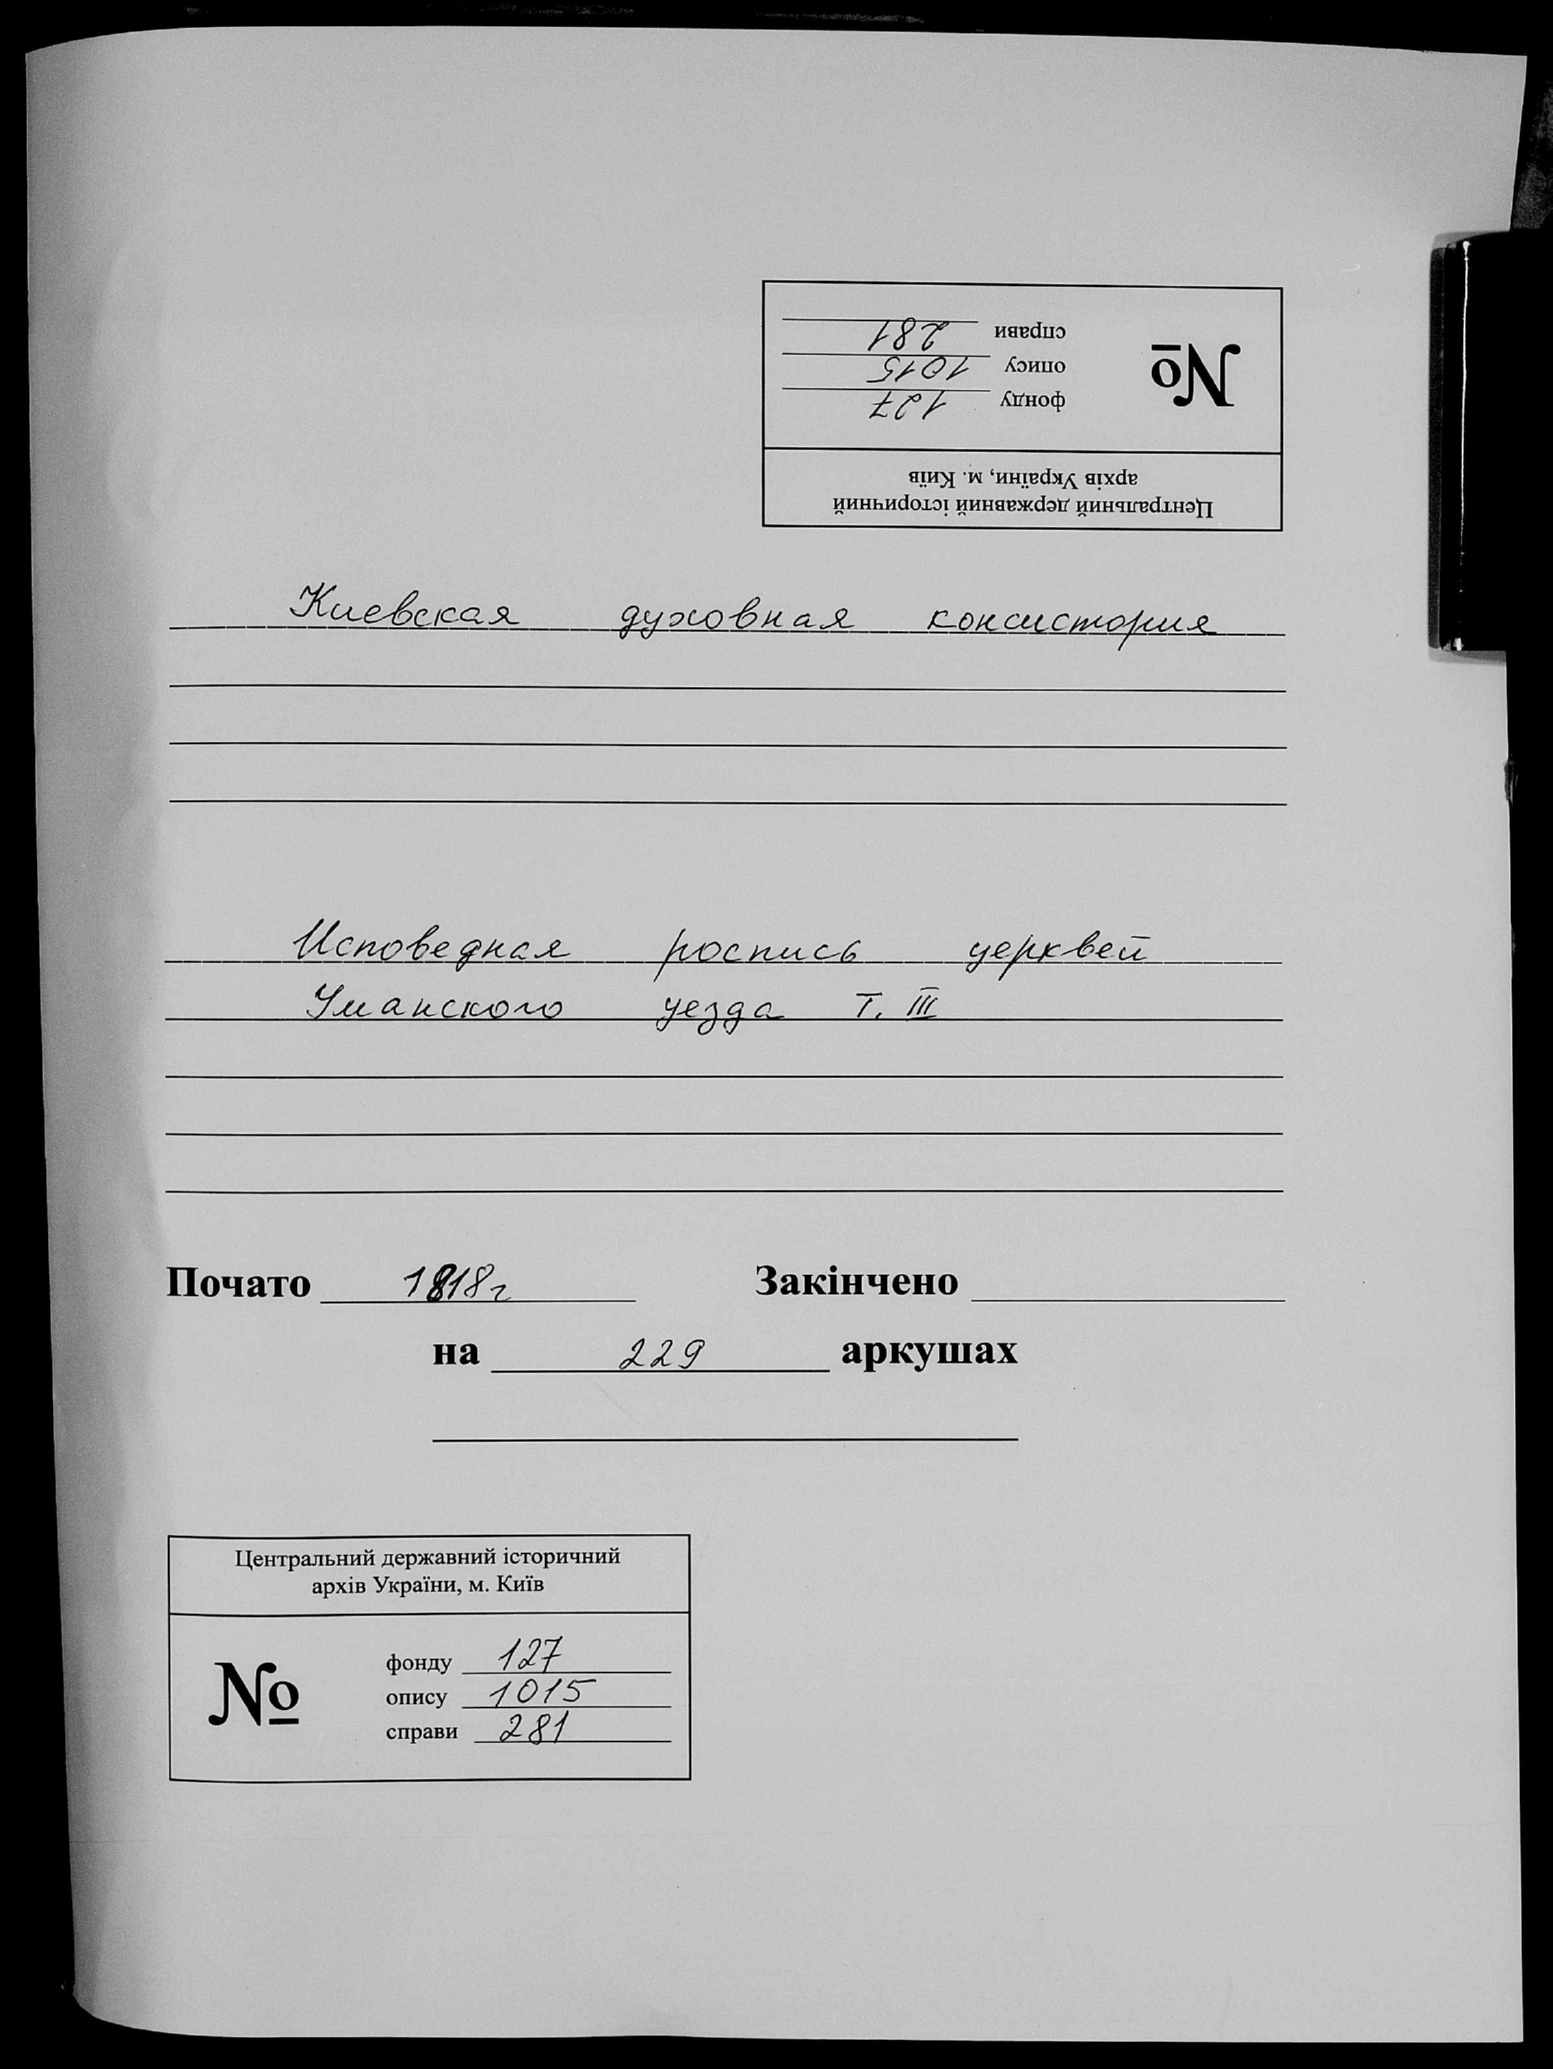 Центральний державний історичний
архів України, м. Київ
№
фонду 127
опису 1015
справи 281
Киевская духовная консистория
Исповедная роспись церквей
Уманского уезда Т. III
Почато 1818г Закінчено
на 229 аркушах
Центральний державний історичний
архів України, м. Київ
№
фонду 127
опису 1015
справи 281